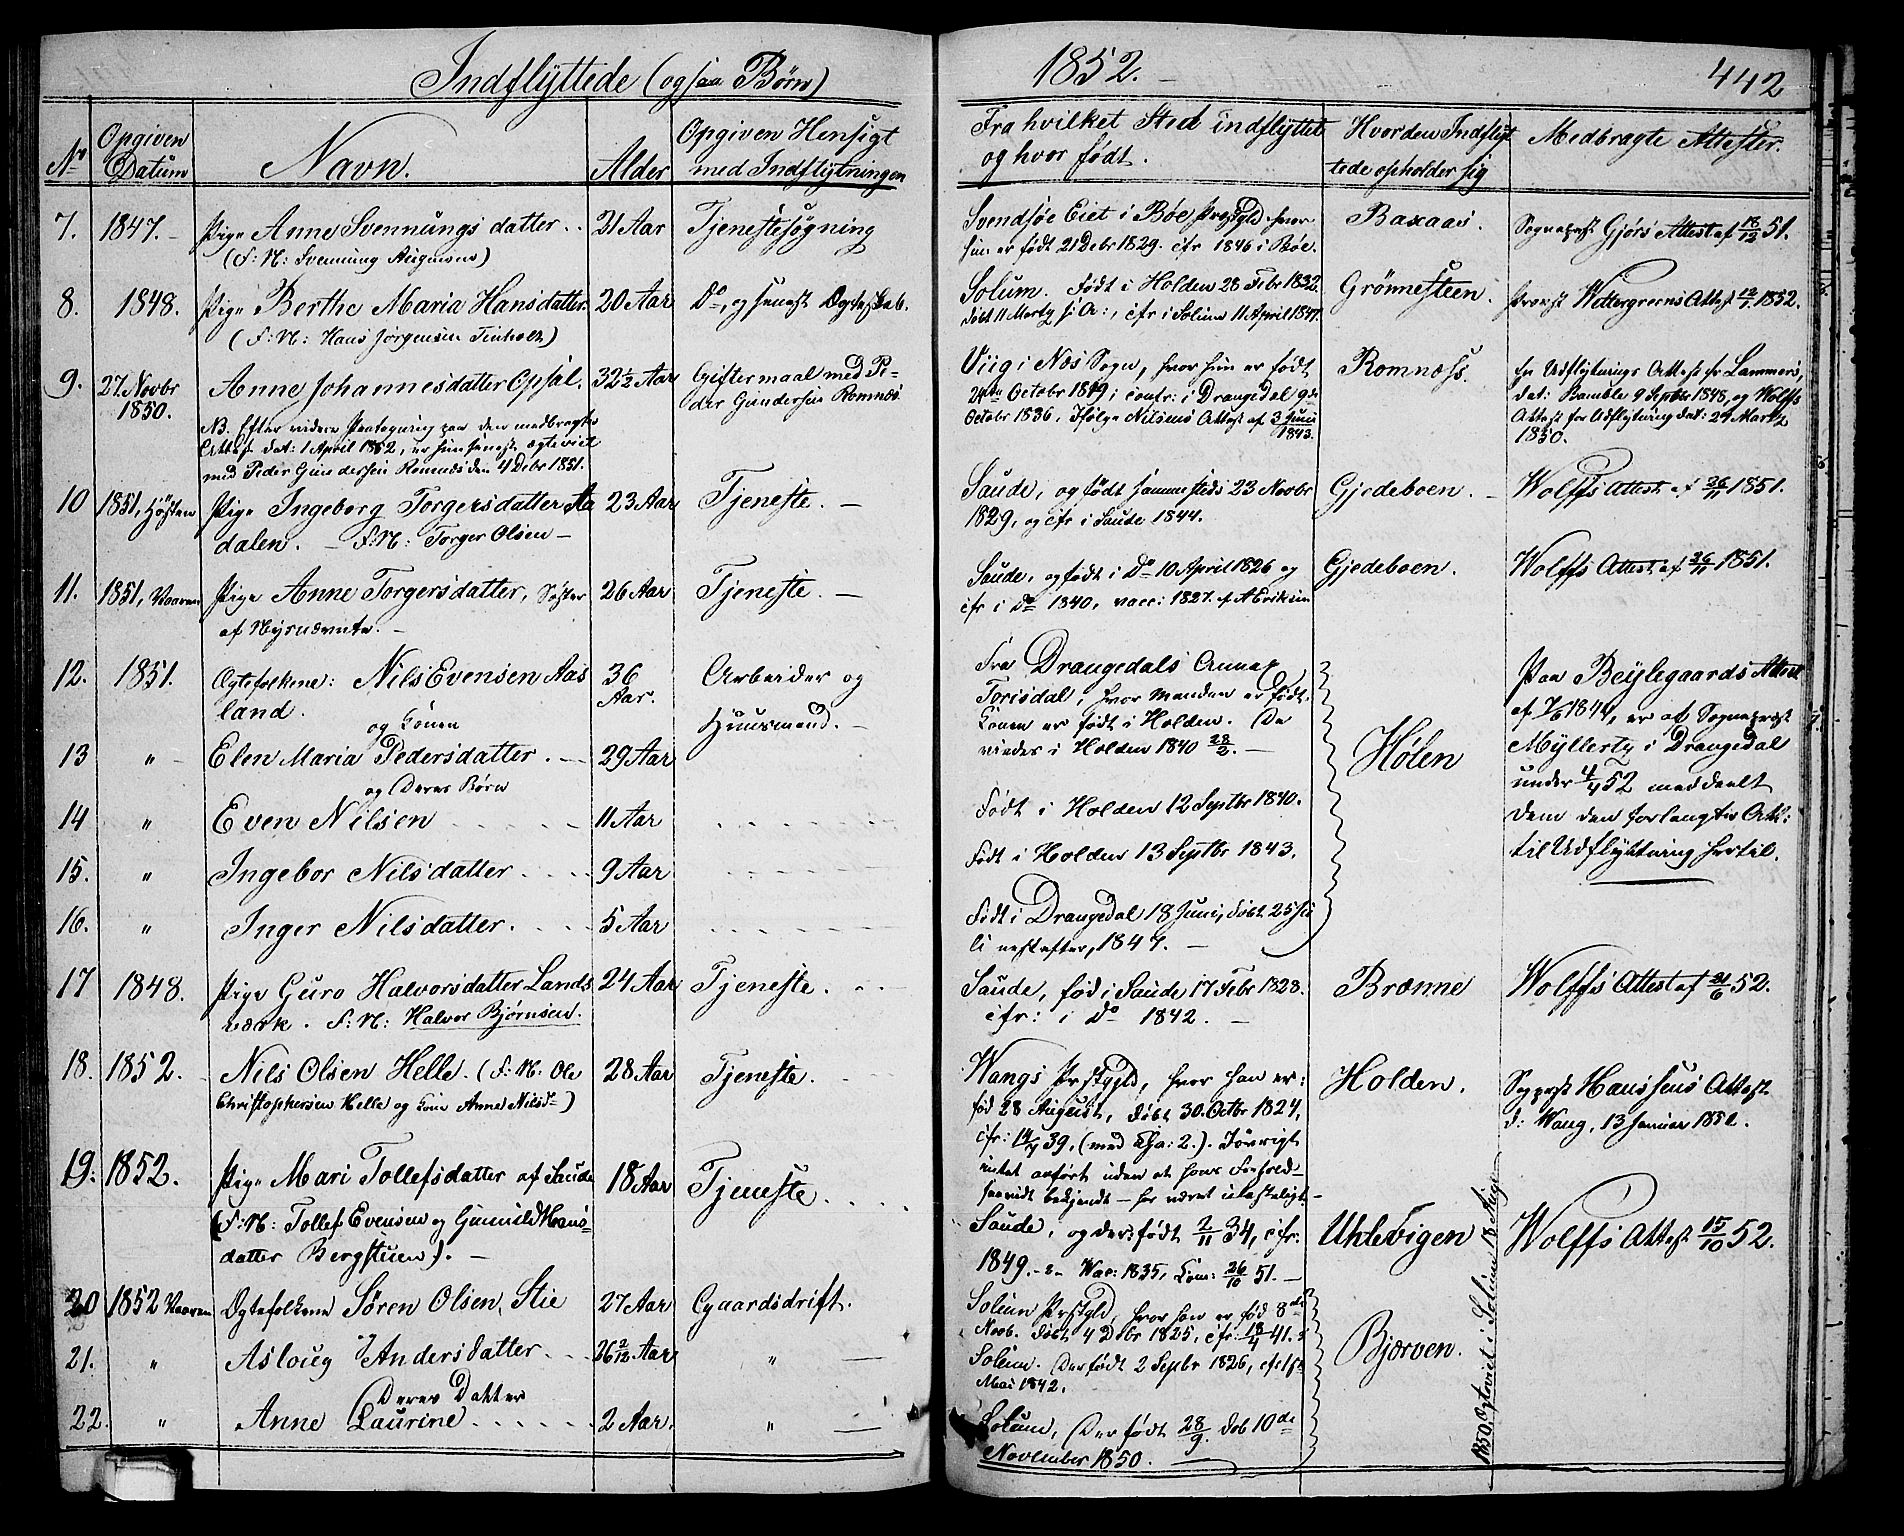 Indflyttede (ogsaa Børn)
1852.
442
No
Opgiven Datum
Navn.
Alder
Opgiven Hensigt med Indflytningen
Fra hvilket Sted indflyttet og hvor født.
Hvor den Indflyttede opholder sig
Medbragte Attester.
7. 1847. Pige Anne Svennungsdatter 21 Aar Tjenestesøgning
(F: N: Svennung
Svendsøe Eiet i Bøe Præstgld hvor
hun er født 21 Debr 1829. cfr 1846 i Bøe.
Baxaas.
Sognepræst Gjørs Attest af 18/12 51.
8. 1848. Pige Berthe Maria Hansdatter 20 Aar Do, og senest Ægteskab.
(F: N: Hans Jørgensen Tinholt)
Solum. Født i Holden 28 Febr 1832.
døbt 11 Marty s: A:, cfr i Solum 11 April 1847.
Grønnesteen.
Provst Wettergreens Attest 1852.
9. 27. Novbr 1850. Anne Johannesdatter Opsal. 32½ Aar Giftermaal med Pe-
der Gundersen Romnæs
NB. Efter videre Paategning paa den medbragte
Attest dat: 1 April 1852, er hun senest ægteviet
med Peder Gundersen Romnæs den 4 Debr 1851.
Viig i Næs Sogn, hvor hun er født
Octobr 1819; confr: i Drangedal 9de
Octobr 1836, Ifølge Nilsens Attest af 3 Juni
1843.
Romnæss.
En Udflytnings Attest fr Lammers,
dat: Bamble 9 Septbr 1848, og Wolffs
Attest for Udflytning dat: 29 Martz
1850.
10 1851, Høsten Pige Ingeborg Torgersdatter Aa
dalen. F: N: Torger Olsen 23 Aar Tjeneste.
Saude, og født sammesteds 23 Novbr
1829, og cfr i Saude 1844.
Gjedeboen.
Wolffs Attest af 26/11 1851.
11. 1851, Vaaren Pige Anne Torgersdatter, Søster
af Nysnævnte. 26 Aar Tjeneste.
Saude, og født i Do 10 April 1826 og
cfr i Do 1840, vacc: 1827 af A Eriksen
Gjedeboen.
Wolffs Attest af 26/11 1851.
12. 1851. Ægtefolkene: Nils Evensen Aas
land. 36 Aar. Arbeider og
Huusmand.
og Konen
Fra Drangedals Annex
Törisdal, hvor Manden er født.
Konen er født i Holden. De
viedes i Holden 1840 28/2.
Hølen
Paa Beylegaards Attest
af 1847, er af Sognepræst
Myllerty i Drangedal
under 4/4 52 meddeelt
dem den forlangte Att:
til Udflyttning hertil.
13 " Elen Maria Pedersdatter. 29 Aar
og Deres Børn
14 " Even Nilsen 11 Aar
Født i Holden 12 Septbr 1840.
15. " Ingebor Nilsdatter 9 Aar
Født i Holden 13 Septbr 1843.
16. " Inger Nilsdatter. 5 Aar
Født i Drangedal 18 Juni, døbt 25 Ju
li næstefter, 1847.
17 1848. Pige Guro Halvorsdatter Lands
værk. F: N: Halvor Bjørnsen. 24 Aar Tjeneste.
Saude, fød i Saude 17 Febr 1828.
cfr: i Do 1842.
Brænne
Wolffs Attest af 21/6 52.
18. 1852. Nils Olsen Helle. (F: N: Ole
Christophersen Helle og Kone Anne Nilsd) 28 Aar Tjeneste.
Wangs Prstgjld, hvor han er
fød 28 August, døbt 30. Octbr 1824,
cfr: 39, (med Cha: 2.). Iøvrigt
intet anført uden at hans Forhold
saavidt bekjendt – har været ulasteligt
Holden.
Sognepræst Hanssens Attest
d: Wang, 13 Januar 1852.
19. 1852. Pige Mari Tollefsdatter af Saude
(F: N: Tollef Evensen og Gunnild Hans-
datter Bergstuen). 18 Aar Tjeneste.
Saude, og der født 2/11 34, cfr.
1849. Vac: 1835, Com: 26/10 51.
Uhlevigen
Wolffs Attest 15/10 52.
20 1852 Vaaren Ægtefolkene Søren Olsen, Stie 27 Aar Gaardsdrift.
Solum Prstgld, hvor han er fød 8de
Novb. døbt 4 Debr 1825, cfr: 18/4 41.
Bjerven.
1850. Ægteviet i Solum 18 Aug
21. " Asloug Andersdatter 26 2/12 Aar "
Deres Datter
Solum. Der født 2 Septbr 1826,
Mai 1842.
22. " Anne Laurine 2 Aar. "
Solum, Der født 28/9. døb 10de
November 1850.